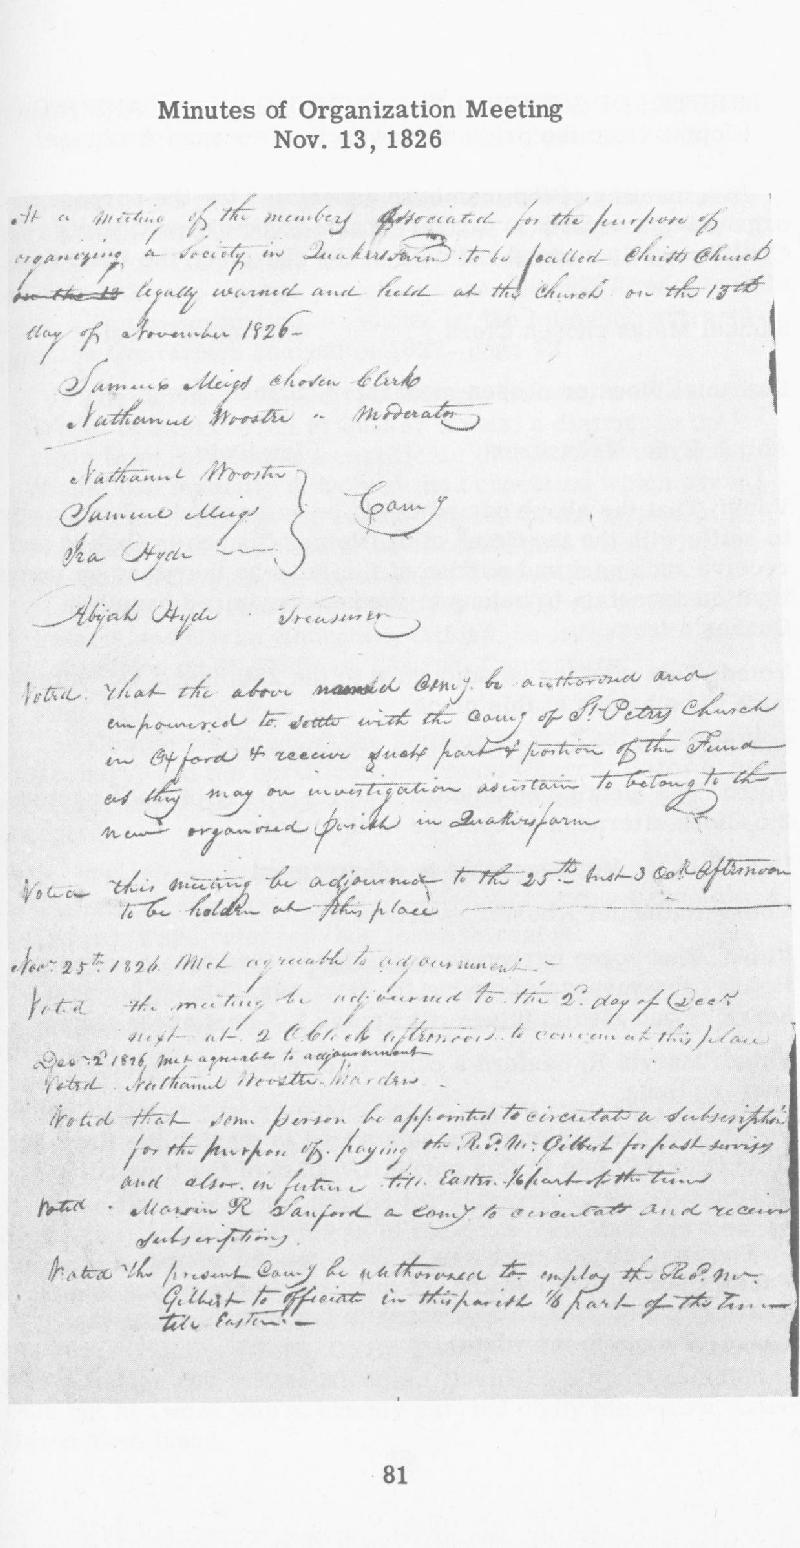 Minutes of Organization Meeting
Nov. 13, 1826
At a meeting of the members associated for the purpose of
organizing a Society in Quakers to be called Christs Church
on the 13 legally warned and held at the Church on the 13th
day of November 1826-
Samuel Meigs chosen Clerk
Nathaniel Wooster " Moderator
Nathaniel Wooster
Samuel Meigs
Ira Hyde
Comy
Abijah Hyde Treasurer
Voted. that the above named Comy. be authorised and
empowered to settle with the Comy of St. Peters Church
in Oxford & receive such part & portion of the Fund
as they may on investigation asertain to belong to the
new organised parish in Quakersfarm
Voted this meeting be adjourned to the 25th Inst 3 Oclk Afternoon
to be holden at this place
Novr. 25th. 1826. Met agreable to adjournment.-
Voted the meeting be adjourned to the 2d. day of Decr.
next at 2 OClock afternoon to at this place
Decr. 2d 1826, met agreable to adjournment
Voted. Nathaniel Wooster Warden
Voted that some person be appointed to circulate a subscription
for the purpose of paying the Revd. Mr. Gilbert for past
and also in future till Easter 1/6 part of the time
Voted. Marvin R Sanford a Comy to circulate and receive
subscriptions.
Voted the present Comy be authorised to employ the Revd. Mr.
Gilbert to officiate in this parish 1/6 part of the time
till Easter.-
81